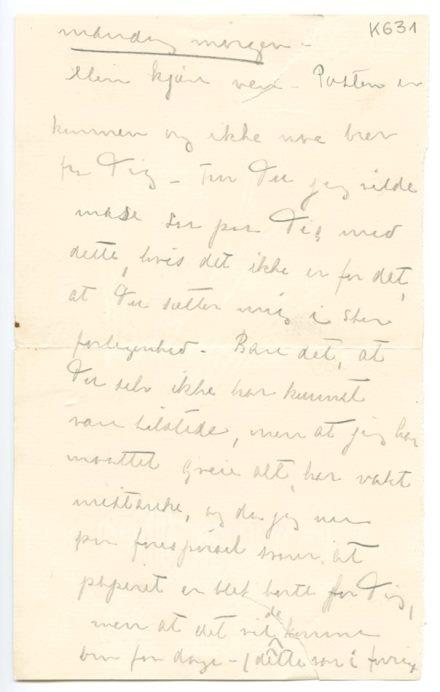 K631
mandag morgen -
Min kjære ven - Posten er
kommen og ikke noe brev
fra Dig - Tror Du jeg vilde
mase saa paa Dig med
dette, hvis det ikke er for det,
at Du sætter mig i stor
forlegenhed. Bare det, at
Du selv ikke har kunnet
være tilstede, men at jeg har
maattet greie alt, har vakt
mistanke, og da jeg nu
paa forespørsel svarer, at
papiret er blet borte for Dig,
men at det vil komme
om faa dage - (dette sa i forrige